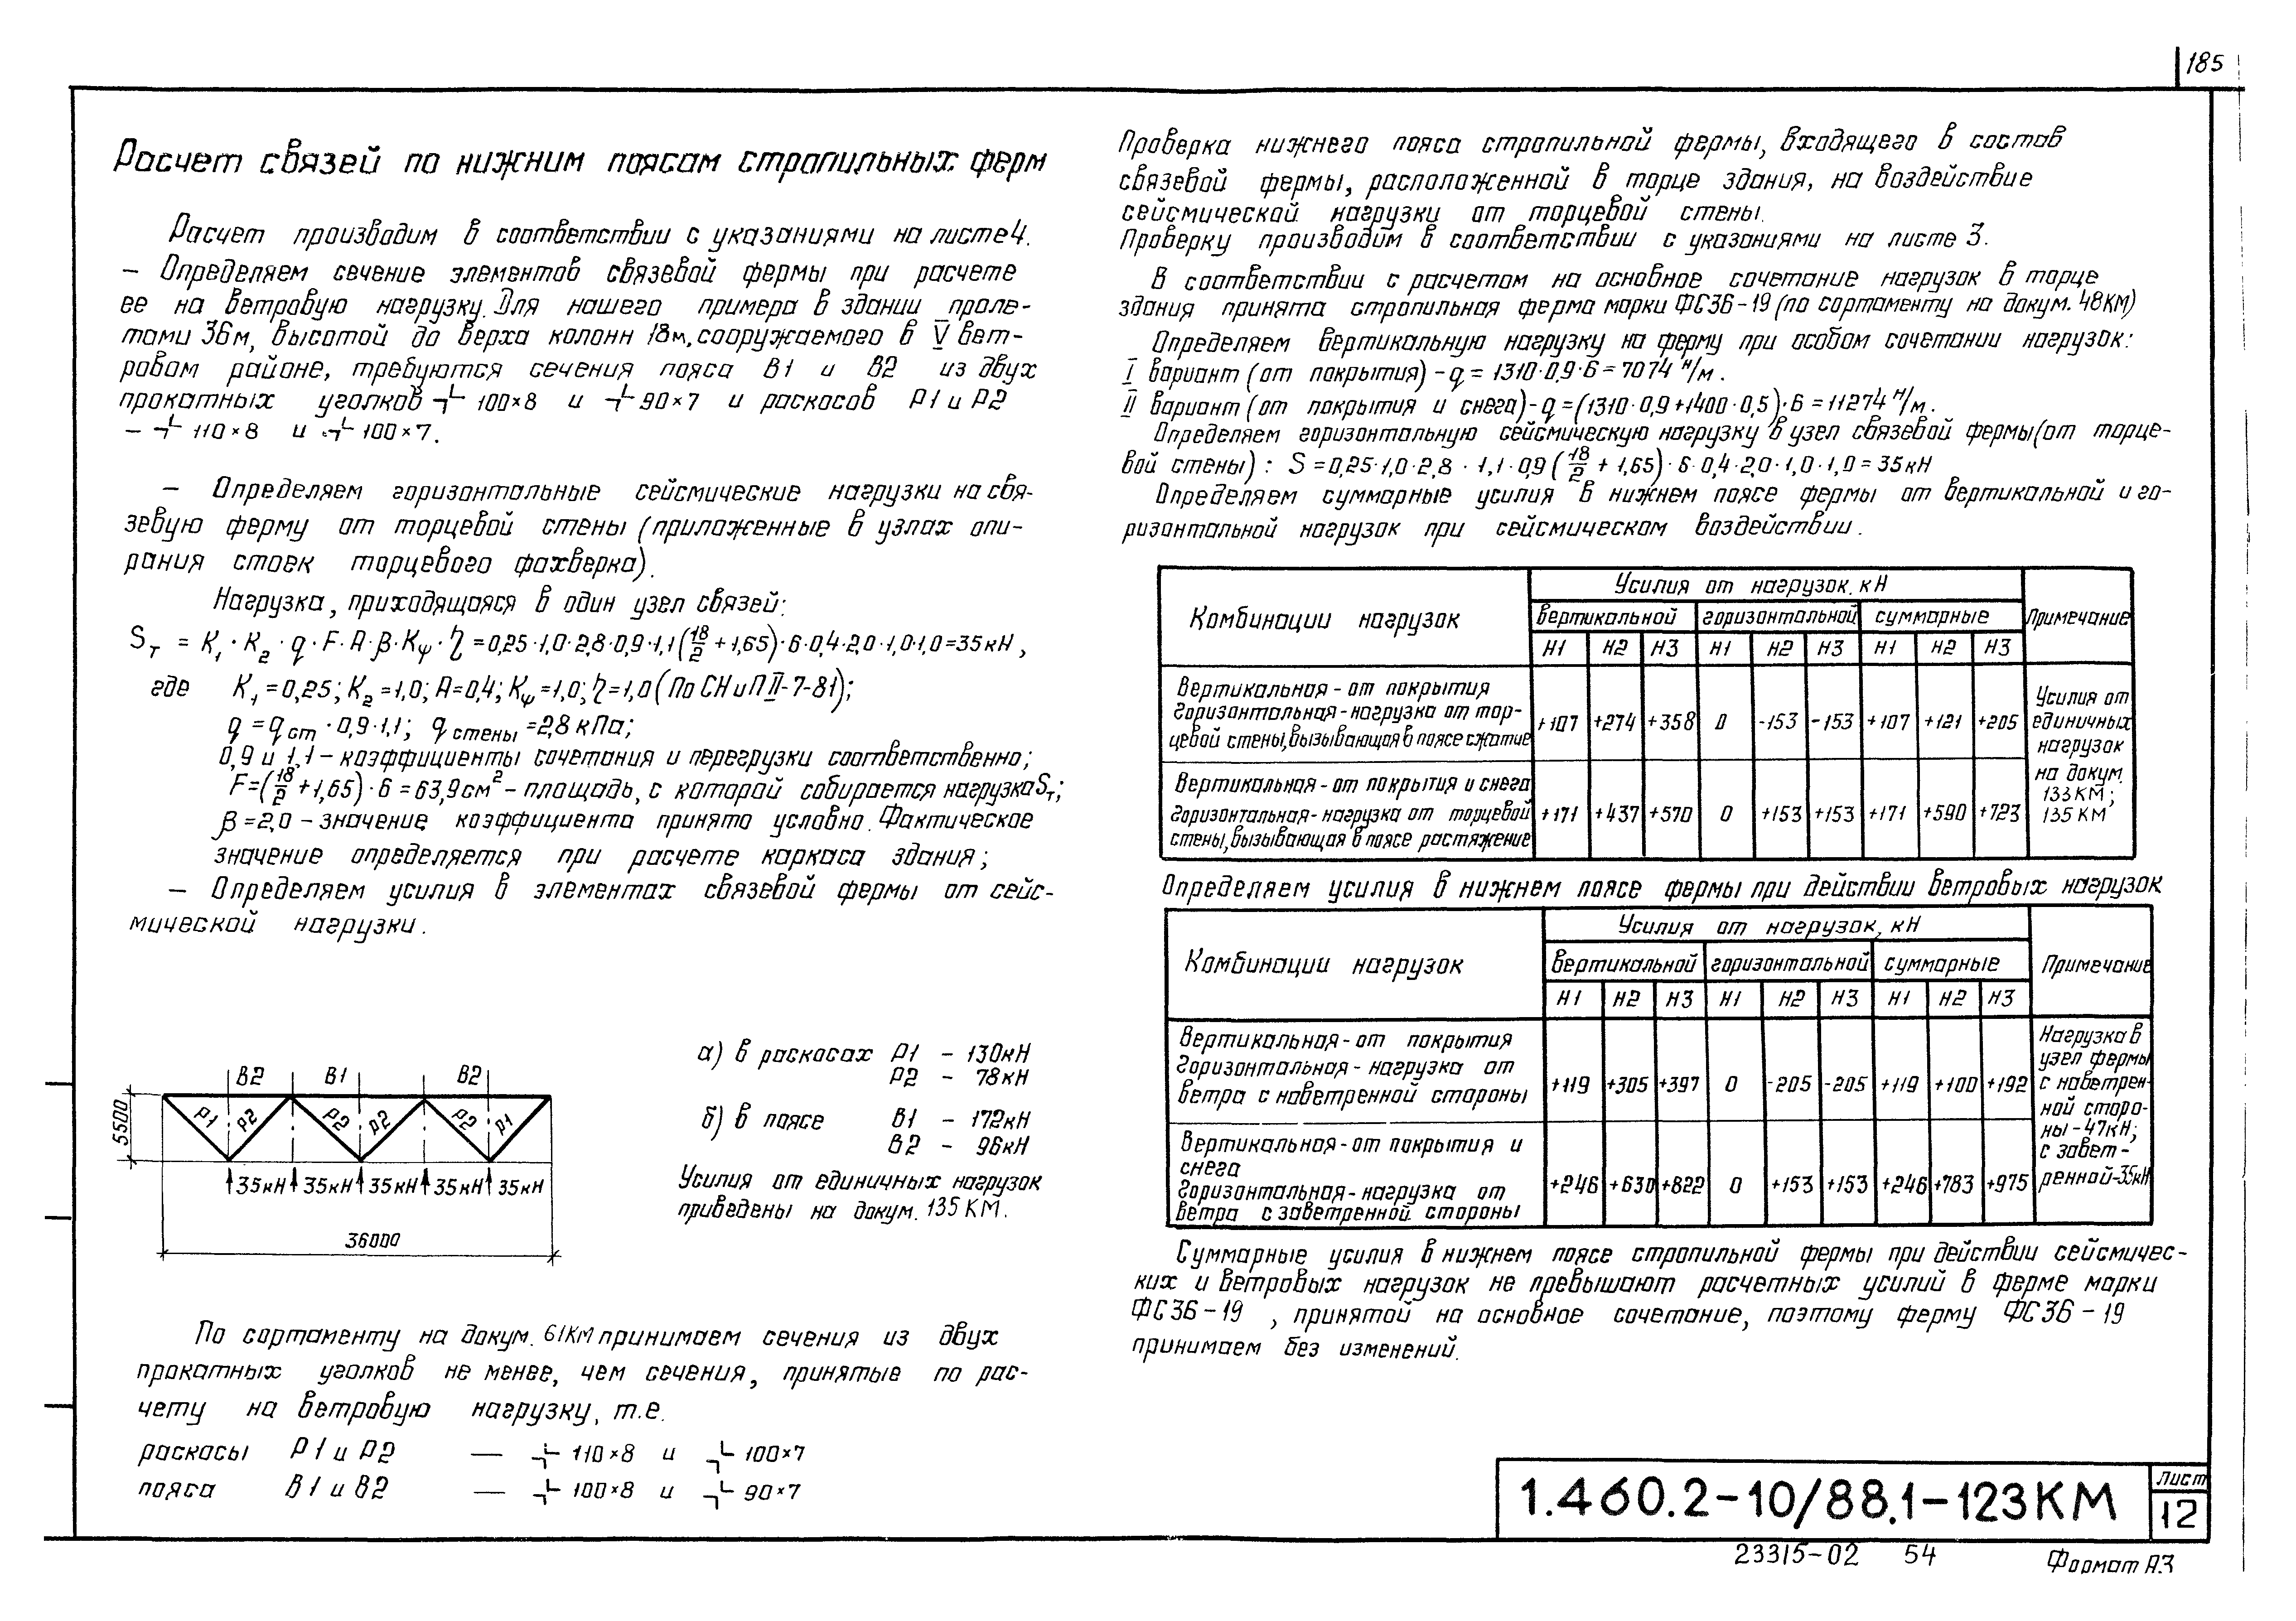 185
Расчет связей по нижним поясам стропильных ферм
Расчет производим в соответствии с указаниями на листе 4.
– Определяем сечение элементов связевой фермы при расчете
ее на ветровую нагрузку. Для нашего примера в здании проле-
тами 36м, высотой до верха колонн 18м, сооружаемого в V вет-
ровом районе, требуются сечения пояса В1 и В2 из двух
прокатных уголков 100×8 и 90×7 и раскосов Р1 и Р2
– 110×8 и 100×7.
– Определяем горизонтальные сейсмические нагрузки на свя-
зевую ферму от торцевой стены (приложенные в узлах опи-
рания стоек торцевого фахверка).
Нагрузка, приходящаяся в один узел связей:
Sт = K1·K2·q·F·A·β·Kψ·η=0,25·1,0·2,8·0,9·1,1(18/2+1,65)·6·0,4·2,0·1,0·1,0=35кН,
где K1=0,25; K2=1,0; A=0,4; Kψ=1,0; η=1,0 (По СНиП II-7-81);
q=qст·0,9·1,1; qстены=2,8кПа;
0,9 и 1,1 – коэффициенты сочетания и перегрузки соответственно;
F=(18/2+1,65)·6=63,9см² – площадь, с которой собирается нагрузка Sт;
β=2,0 – значение коэффициента принято условно. Фактическое
значение определяется при расчете каркаса здания;
– Определяем усилия в элементах связевой фермы от сейс-
мической нагрузки.
В2 В1 В2
Р1 Р2 Р2 Р2 Р2 Р1
5500
35кН 35кН 35кН 35кН 35кН
36000
а) в раскосах Р1 – 130кН
Р2 – 78кН
б) в поясе В1 – 172кН
В2 – 96кН
Усилия от единичных нагрузок
приведены на докум. 135 КМ.
По сортаменту на докум. 61КМ принимаем сечения из двух
прокатных уголков не менее, чем сечения, принятые по рас-
чету на ветровую нагрузку, т.е.
раскосы Р1 и Р2 — 110×8 и 100×7
пояса В1 и В2 — 100×8 и 90×7
Проверка нижнего пояса стропильной фермы, входящего в состав
связевой фермы, расположенной в торце здания, на воздействие
сейсмической нагрузки от торцевой стены.
Проверку производим в соответствии с указаниями на листе 3.
В соответствии с расчетом на основное сочетание нагрузок в торце
здания принята стропильная ферма марки ФС36-19 (по сортаменту на докум. 48КМ)
Определяем вертикальную нагрузку на ферму при особом сочетании нагрузок:
I вариант (от покрытия) – q = 1310·0,9·6=7074 Н/м.
II вариант (от покрытия и снега) – q=(1310·0,9+1400·0,5)·6=11274 Н/м.
Определяем горизонтальную сейсмическую нагрузку в узел связевой фермы (от торце-
вой стены): S=0,25·1,0·2,8·1,1·0,9(18/2+1,65)·6·0,4·2,0·1,0·1,0=35кН
Определяем суммарные усилия в нижнем поясе фермы от вертикальной и го-
ризонтальной нагрузок при сейсмическом воздействии.
Комбинации нагрузок
Усилия от нагрузок, кН
Примечание
вертикальной горизонтальной суммарные
Н1 Н2 Н3 Н1 Н2 Н3 Н1 Н2 Н3
Вертикальная – от покрытия
Горизонтальная – нагрузка от тор-
цевой стены, вызывающая в поясе сжатие
+107 +274 +358 0 -153 -153 +107 +121 +205
Вертикальная – от покрытия и снега
Горизонтальная – нагрузка от торцевой
стены, вызывающая в поясе растяжение
+171 +437 +570 0 +153 +153 +171 +590 +723
Усилия от
единичных
нагрузок
на докум.
133КМ;
135 КМ
Определяем усилия в нижнем поясе фермы при действии ветровых нагрузок
Комбинации нагрузок
Усилия от нагрузок, кН
Примечание
вертикальной горизонтальной суммарные
Н1 Н2 Н3 Н1 Н2 Н3 Н1 Н2 Н3
Вертикальная – от покрытия
Горизонтальная – нагрузка от
ветра с наветренной стороны
+119 +305 +397 0 -205 -205 +119 +100 +192
Вертикальная – от покрытия и
снега
Горизонтальная – нагрузка от
ветра с заветренной стороны
+246 +630 +822 0 +153 +153 +246 +783 +975
Нагрузка в
узел фермы
с наветрен-
ной сторо-
ны – 47кН;
с завет-
ренной-35кН
Суммарные усилия в нижнем поясе стропильной фермы при действии сейсмичес-
ких и ветровых нагрузок не превышают расчетных усилий в ферме марки
ФС36-19, принятой на основное сочетание, поэтому ферму ФС36-19
принимаем без изменений.
1.460.2-10/88.1-123КМ
Лист
12
23315-02 54
Формат А3